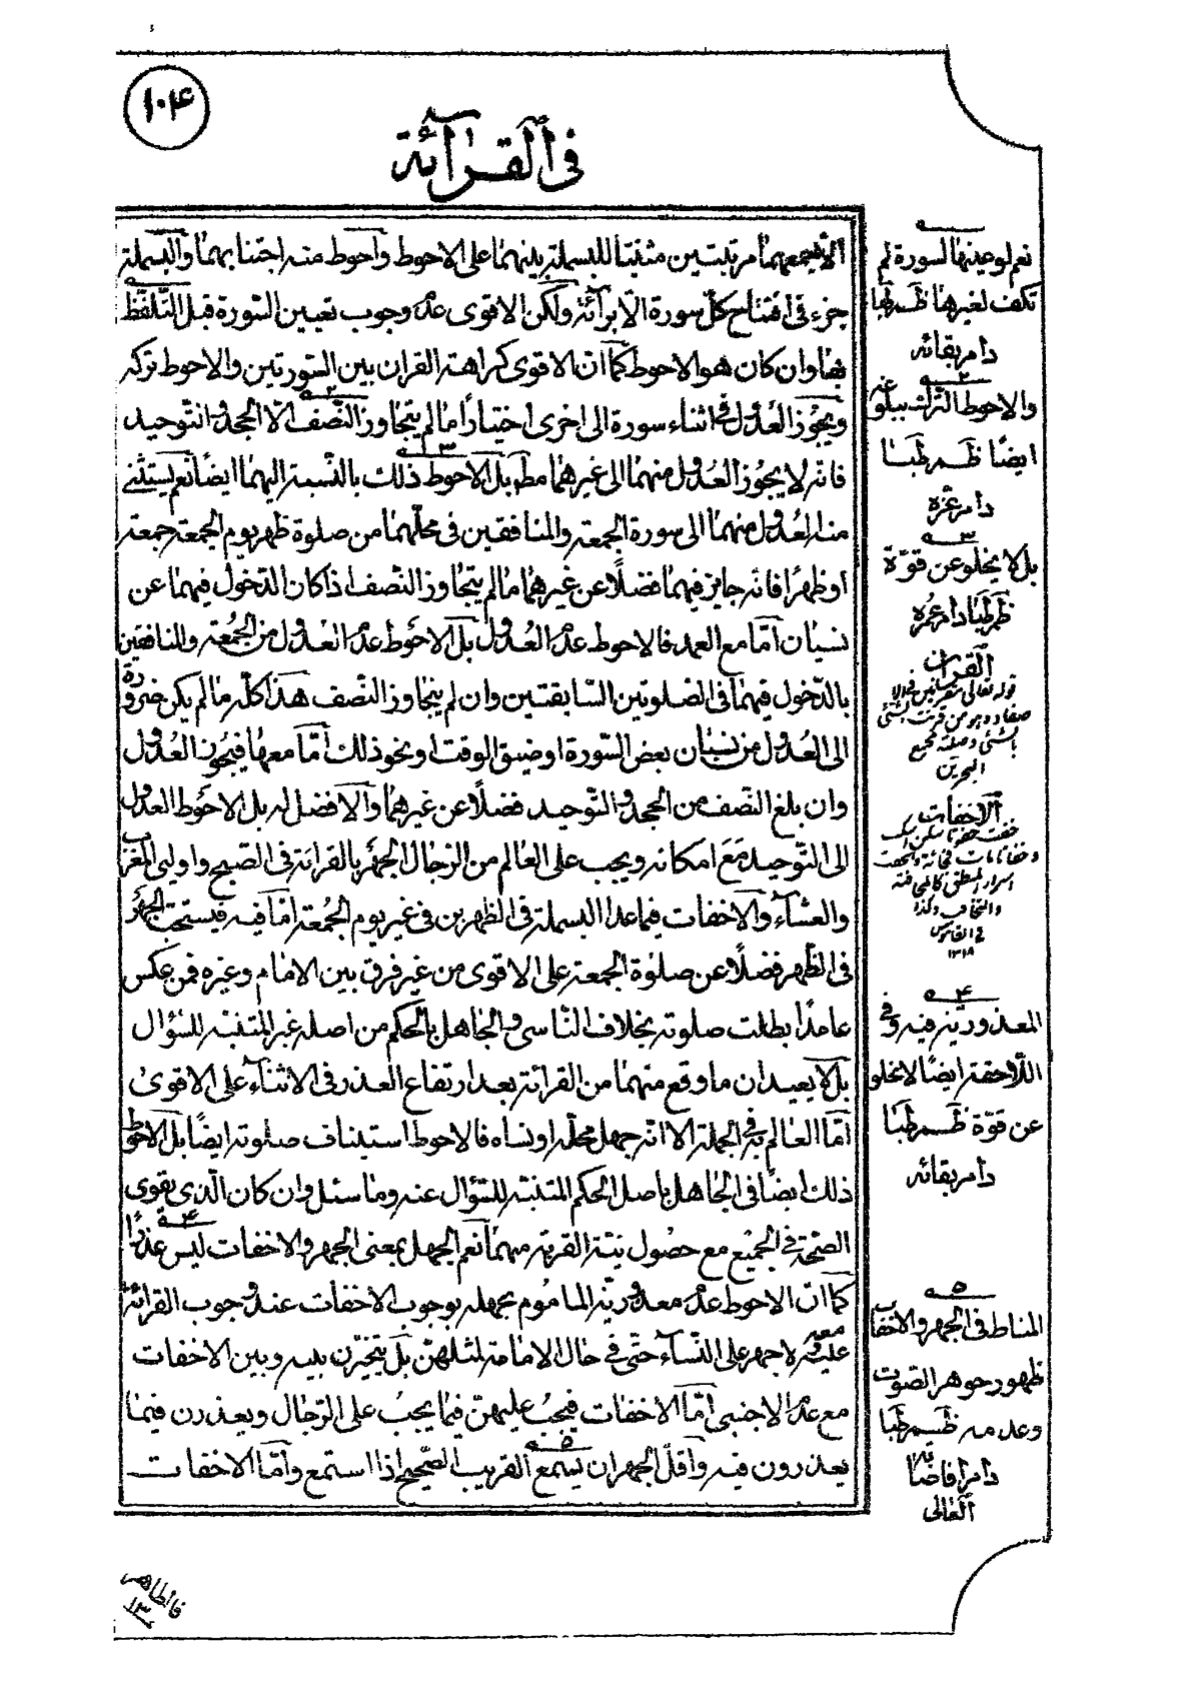 ١٠۴
في القرآئة
الا بجمعهما مرتبتين مثنيتا للبسملة بينهما على الاحوط واحوط منه اجتنابهما والبسملة
جزء في افتتاح كلّ سورة الّا برآئة ولكن الاقوى عدم وجوب تعيين السّورة قبل التّلفّظ
بها وان كان هو الاحوط كما انّ الاقوى كراهة القران بين السّورتين والاحوط تركه
ويجوز العدول في اثناء سورة الى اخرى اختيارًا ما لم يتجاوز النّصف الّا الجحد والتوحيد
فانّه لا يجوز العدول منهما الى غيرهما مطم بل الاحوط ذلك بالنّسبة اليهما ايضًا نعم يستثنى
منه العدول منهما الى سورة الجمعة والمنافقين في محلّهما من صلوة ظهر يوم الجمعة جمعة
او ظهرًا فانّه جايز فيهما فضلًا عن غيرهما ما لم يتجاوز النّصف اذا كان الدّخول فيهما عن
نسيان امّا مع العمد فالاحوط عدم العدول بل الاحوط عدم العدول من الجمعة والمنافقين
بالدّخول فيهما في الصّلوتين السّابقتين وان لم يتجاوز النّصف هذا كلّه ما لم يكن ضرورة
الى العدول من نسيان بعض السّورة او ضيق الوقت او نحو ذلك امّا معها فيجوز العدول
وان بلغ النّصف من الجحد والتّوحيد فضلًا عن غيرهما والافضل له بل الاحوط العدول
الى التّوحيد مع امكانه ويجب على العالم من الرّجال الجهر بالقرائة في الصّبح واوليى المغرب
والعشآء والاخفات فيما عدا البسملة في الظهرين في غير يوم الجمعة امّا فيه فيستحبّ الجهر
في الظّهر فضلًا عن صلوة الجمعة على الاقوى من غير فرق بين الامام وغيره فمن عكس
عامدًا بطلت صلوته بخلاف النّاسي والجاهل بالحكم من اصله غير المتنبّه للسّؤال
بل لا يعيدان ما وقع منهما من القرائة بعد ارتفاع العذر في الاثناء على الاقوى
امّا العالم به في الجملة الّا انّه جهل محلّه او نساه فالاحوط استيناف صلوته ايضًا بل الاحوط
ذلك ايضًا في الجاهل باصل الحكم المتنبّه للسّؤال عنه وما سئل وان كان الّذي يقوى
الصّحّة في الجميع مع حصول نيّة القربة منهما نعم الجهل بمعنى الجهر والاخفات ليس عذرًا
كما انّ الاحوط عدم معذوريّة الماموم بجهله بوجوب الاخفات عند وجوب القرائة
عليه معه لا جهر على النّسآء حتّى في حال الامامة لمثلهنّ بل يتخيّرن بينه وبين الاخفات
مع عدم الاجنبي امّا الاخفات فيجب عليهنّ فيما يجب على الرّجال ويعذرن فيما
يعذرون فيه واقلّ الجهر ان يسمع القريب الصّحيح اذا استمع وامّا الاخفات
نعم لو عينها لسورة لم
تكف لغيرها ظم طبا
دام بقائه
٢
والاحوط الترك ببلوغه
ايضًا ظم طبا
دام عزّه
٣
بل لا يخلو عن قوّة
ظم طبا دام عزه
القران
قوله تعالى مقرنين في الاصفاد وهو من قرنت الشيء
بالشيء وصلته مجمع
البحرين
الاخفات
خفت خفوتا سكن وسكت
وخفاتا مات فجأة والخفت
اسرار المنطق كالمخافتة
والتخافت وكذا
في القاموس
١٣١٨
۴
المعذوريّة فيه وفي
اللّاحقة ايضًا لا يخلو
عن قوّة ظم طبا
دام بقائه
۵
المناط في الجهر والاخفات
ظهور جوهر الصّوت
وعدمه ظم طبا
دام افاضاته
العالى